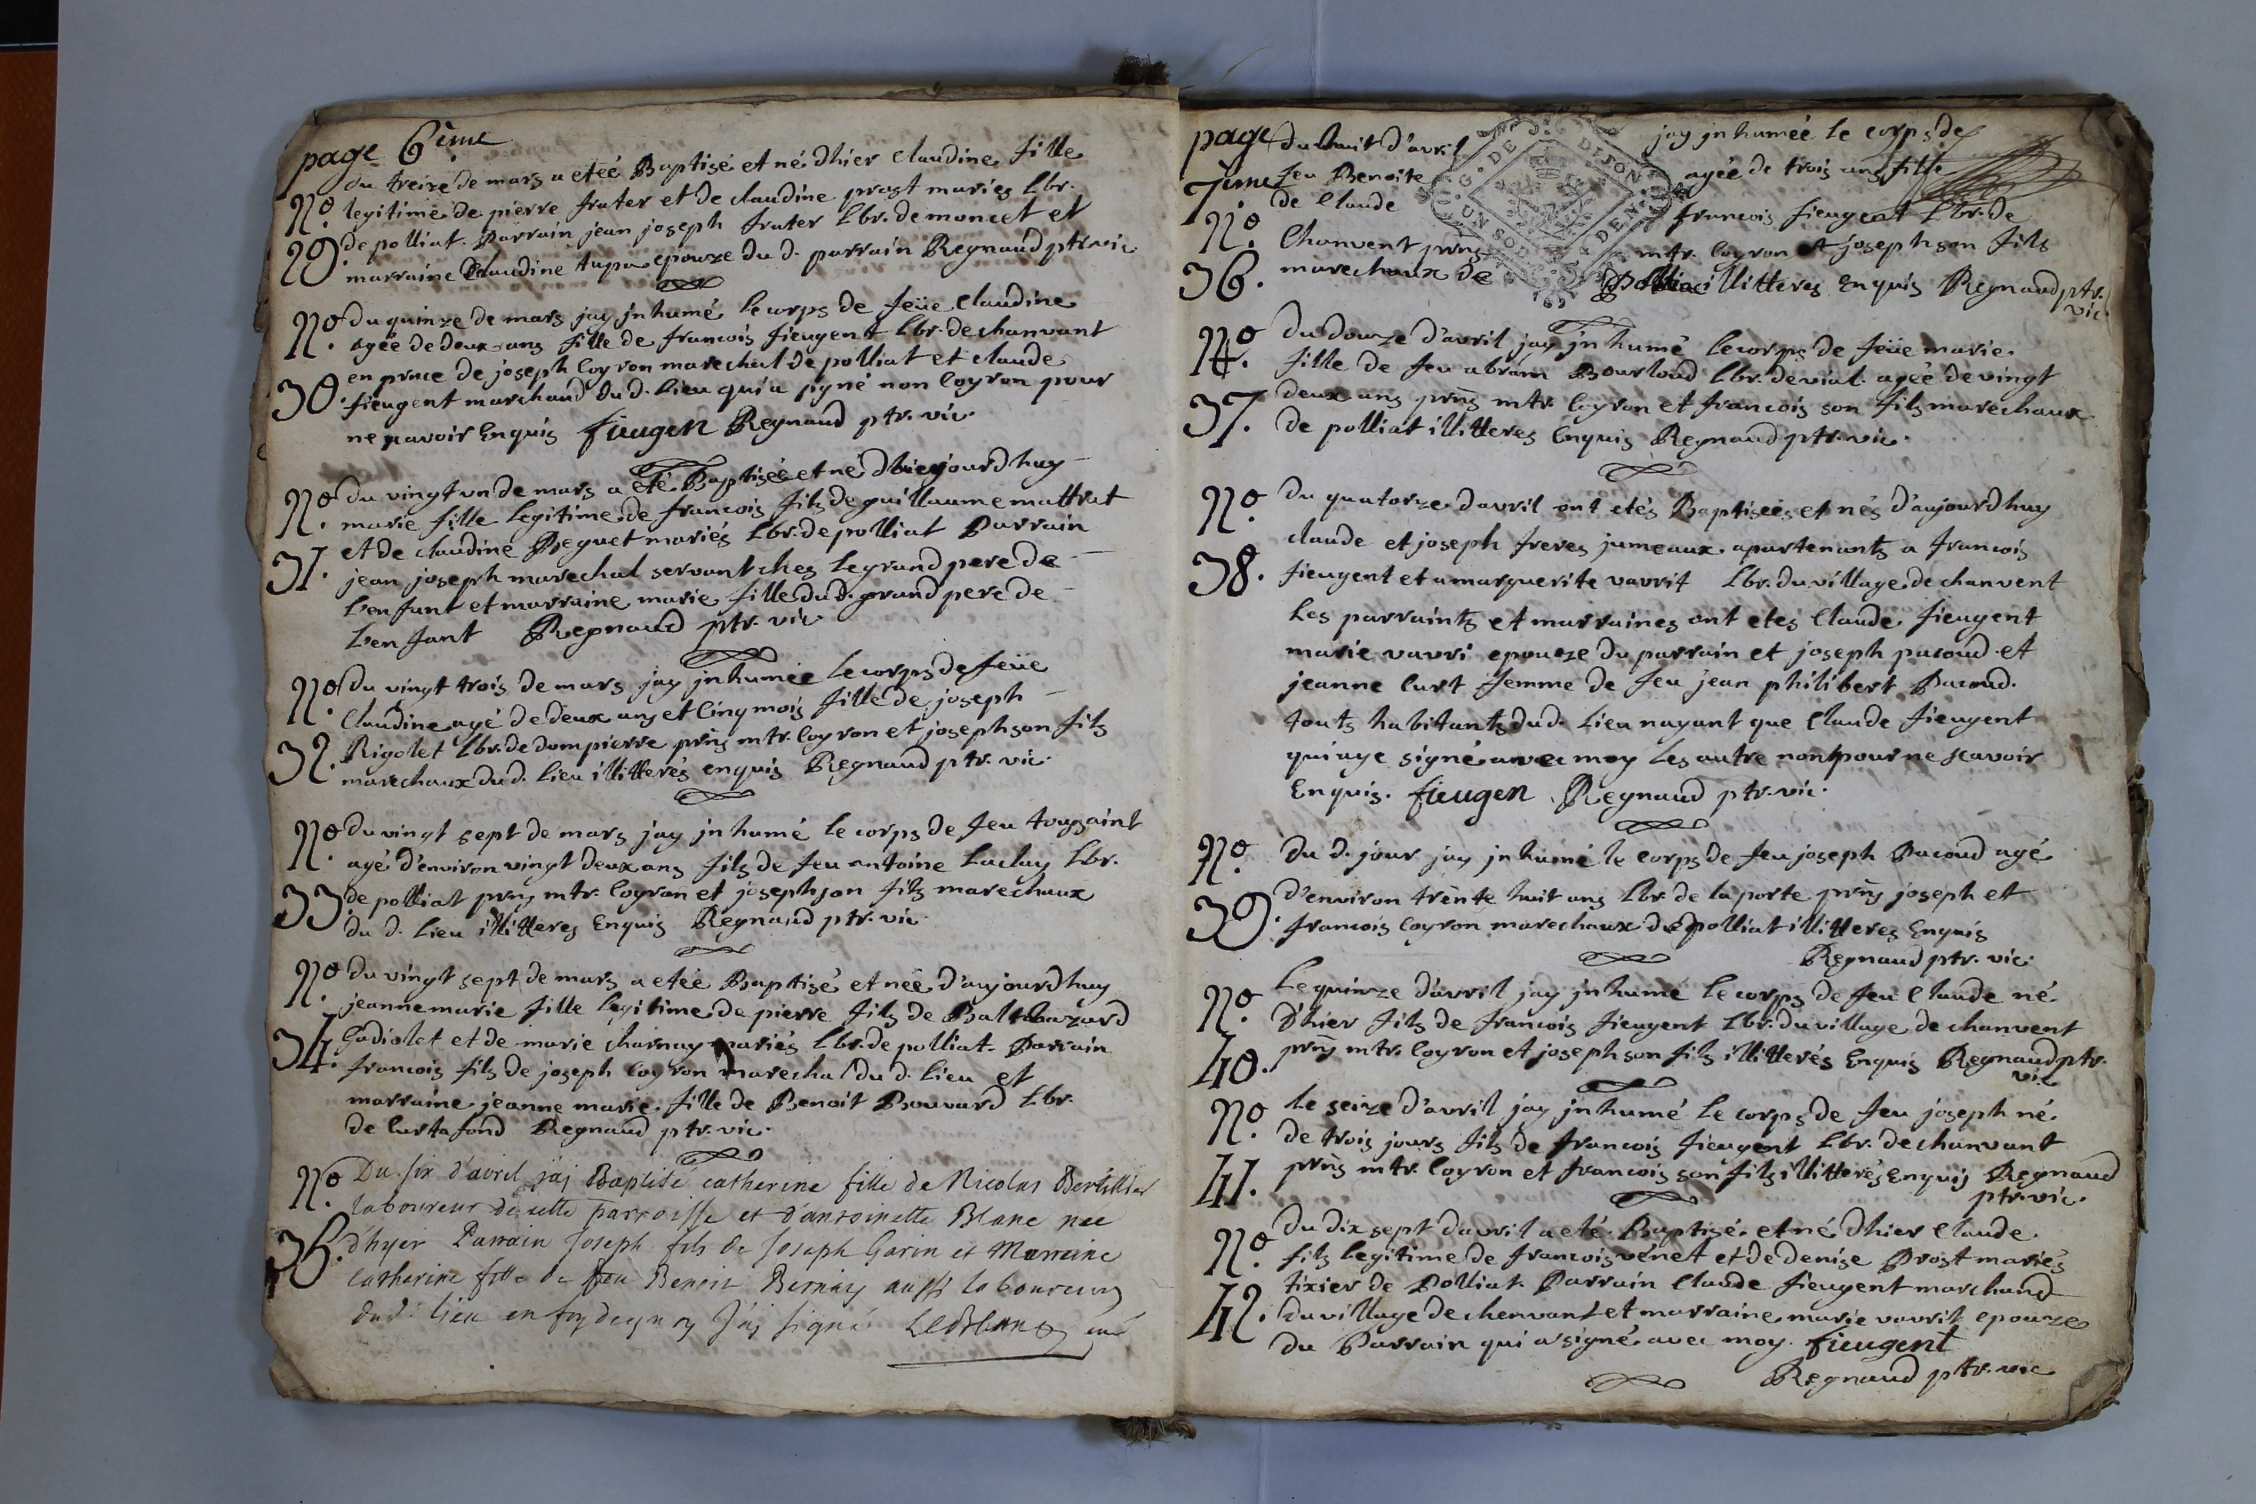 page 6ieme
du treize de mars a eteé Baptisé et né dhier claudine fille
No. legitime de pierre frater et de claudine prost mariez Lbr.
29. de polliat. Parrain jean joseph frater Lbr. de moncet et
marraine Claudine tupa epouze du d. parrain Regnaud ptr. vic
No. du quinze de mars jay jnhumé le corps de feüe Claudine
agée de deux ans fille de francois fieugent Lbr. de chanvant
30. en prnce de joseph Coyron marechal de polliat et claude
fieugent marchand du d. lieu qui a signé non Coyron pour
ne scavoir Enquis fieugen Regnaud ptr. vic.
No. du vingt vn de mars a eté Baptiseé et né d'aujourdhuy
marie fille legitime de francois fils de guillaume mattrat
31. et de claudine Peguet mariés Lbr. de polliat Parrain
jean joseph marechal servant ches le grand pere de
l'enfant et marraine marie fille du d. grand pere de
l'enfant Regnaud ptr. vic
No. du vingt trois de mars jay jnhumée le corps de feüe
Claudine agé de deux ans et Cinq mois fille de joseph
32. Rigolet Lbr. de dompierre prns mtr. Coyron et joseph son fils
marechaux du d. lieu illitterés enquis Regnaud ptr. vic.
No. du vingt sept de mars jay jnhumé le corps de feu toussaint
agé d'environ vingt deux ans fils de feu antoine Luclay Lbr.
33. de polliat prns mtr. Coyron et joseph son fils marechaux
du d. lieu illitteres Enquis Regnaud ptr. vic.
No. du vingt sept de mars a etée Baptisé et neé d'aujourdhuy
jeanne marie fille legitime de pierre fils de Balthazard
34. Gadiolet et de marie charnay mariés Lbr. de polliat. Parrain
francois fils de joseph Coyron marechal du d. lieu et
marraine jeanne marie fille de Benoit Bouvard Lbr.
de Curtafond Regnaud ptr. vic.
No. Du six d'avril j'aj Baptisé catherine fille de Nicolas Bertillier
laboureur de cette parroisse et d'antoinette Blanc née
35. d'hyer Parrain Joseph fils de Joseph Garin et Marraine
catherine fille de feu Benoit Bernay aussi laboureurs
dud. lieu en foy de quoy j'aj signé LeBlanc curé
page du huit d'avril jay jnhumée le corps de
7ieme feu Benoite agée de trois ans fille
No. de Claude francois fieugent Lbr. de
Chanvent prns mtr. Coyron et joseph son fils
36. marechaux de Polliat illitteres Enquis Regnaud ptr.
vic.
No. du douze d'avril jay jnhumé le corps de feüe marie
fille de feu abram Bourloud Lbr. de vial. ageé de vingt
37. deux ans prns mtr. Coyron et francois son fils marechaux
de polliat illitteres Enquis Regnaud ptr. vic.
No. du quatorze d'avril ont etés Baptiseés et nés d'aujourdhuy
claude et joseph freres jumeaux apartenants a francois
38. fieugent et a marguerite vavrit Lbr. du village de chanvent
les parraints et marraines ont etes Claude fieugent
marie vavri epouze du parrain et joseph pacoud et
jeanne Curt femme de feu jean philibert Pacoud.
touts habitants du d. lieu nayant que Claude fieugent
qui aye signé avec moy les autre non pour ne scavoir
Enquis. fieugen Regnaud ptr. vic.
No. du d. jour jay jnhumé le corps de feu joseph Pacoud agé
d'environ trente huit ans Lbr. de la porte prns joseph et
39. francois Coyron marechaux de polliat illitteres Enquis
Regnaud ptr. vic.
No. Le quinze d'avril jay jnhumé le corps de feu Claude né
D'hier fils de francois fieugent Lbr. du village de chanvent
40. prns mtr. Coyron et joseph son fils illitterés Enquis Regnaud ptr.
vic
No. le seize d'avril jay jnhumé le corps de feu joseph né
de trois jours fils de francois fieugent Lbr. de chanvant
41. prns mtr. Coyron et francois son fils illitterés Enquis Regnaud
ptr. vic.
No. du dix sept d'avril a eté Baptisé et né dhier Claude
fils legitime de francois vénet et de denise Prost mariés
tixier de Polliat. Parrain Claude fieugent marchand
42. du village de chenvant et marraine marie vavrit epouze
du Parrain qui a signé avec moy. fieugent
Regnaud ptr. vic